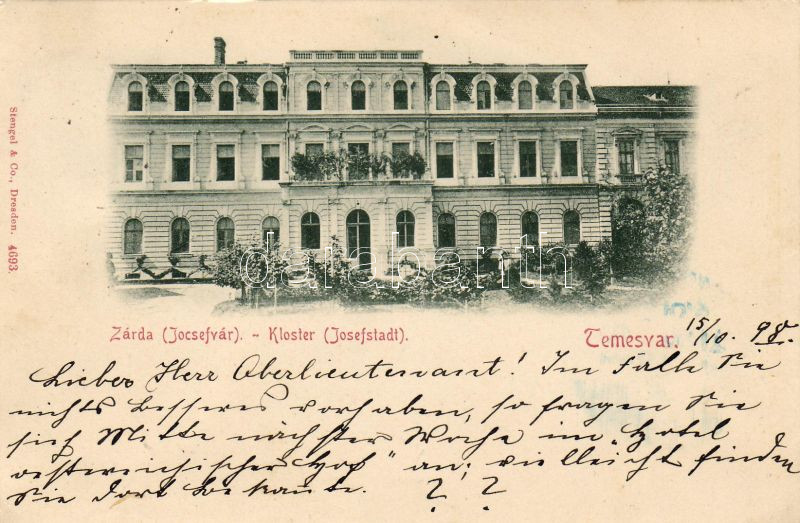 Stengel & Co., Dresden. 4693.
databánk
Zárda (Jocsefvár). - Kloster (Josefstadt).
Temesvar.
15/10. 98.
Lieber Herr Oberlieutenant! Im Falle Sie
nichts besseres vorhaben, so fragen Sie
sich Mitte nächster Woche im „Hotel
oesterreichischer Hof" an; vielleicht finden
Sie dort bekannte. ? ?